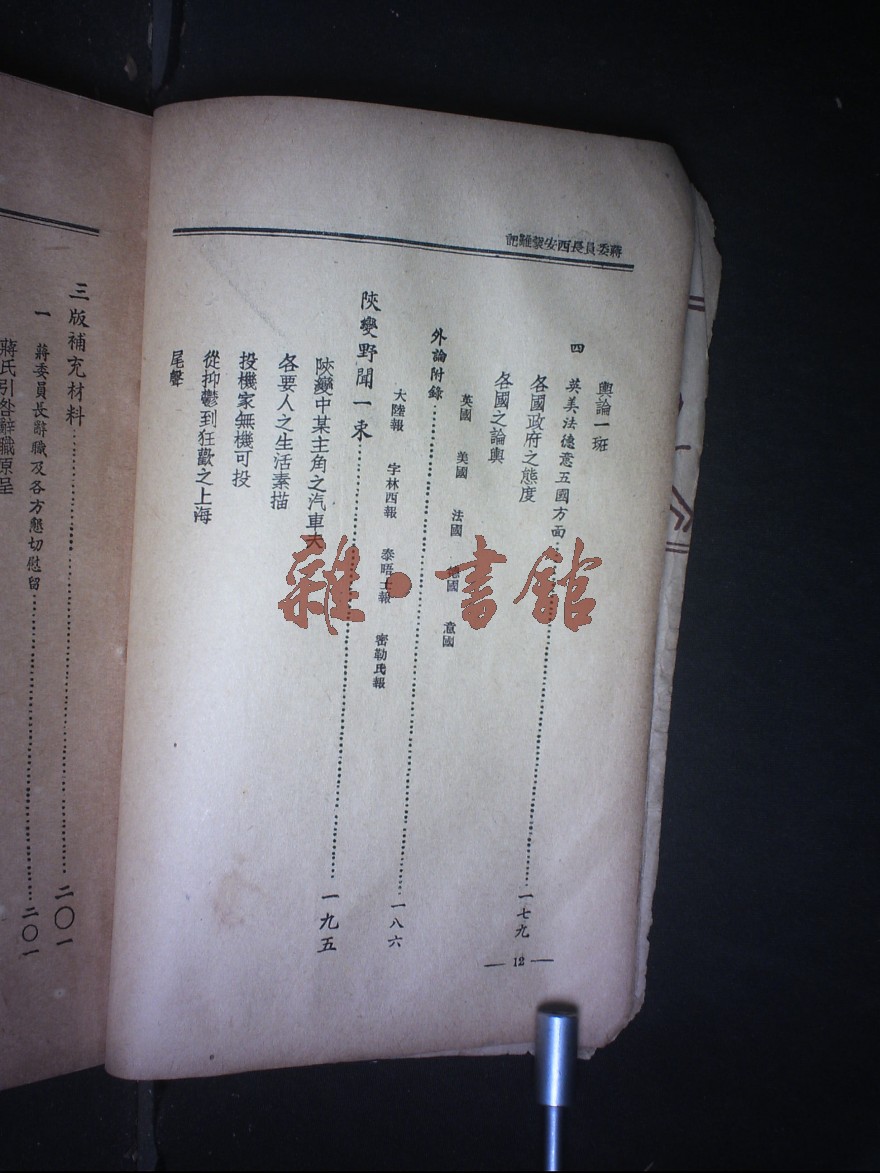 蔣委員長西安蒙難記
輿論一斑
四 英美法德意五國方面……一七九
各國政府之態度
各國之論輿
英國 美國 法國 德國 意國
外論附錄……一八六
大陸報 字林西報 泰晤士報 密勒氏報
陝變野聞一束……一九五
陝變中某主角之汽車夫
各要人之生活素描
投機家無機可投
從抑鬱到狂歡之上海
尾聲
— 12 —
三版補充材料……二〇一
一 蔣委員長辭職及各方懇切慰留……二〇一
蔣氏引咎辭職原呈
雜·書館